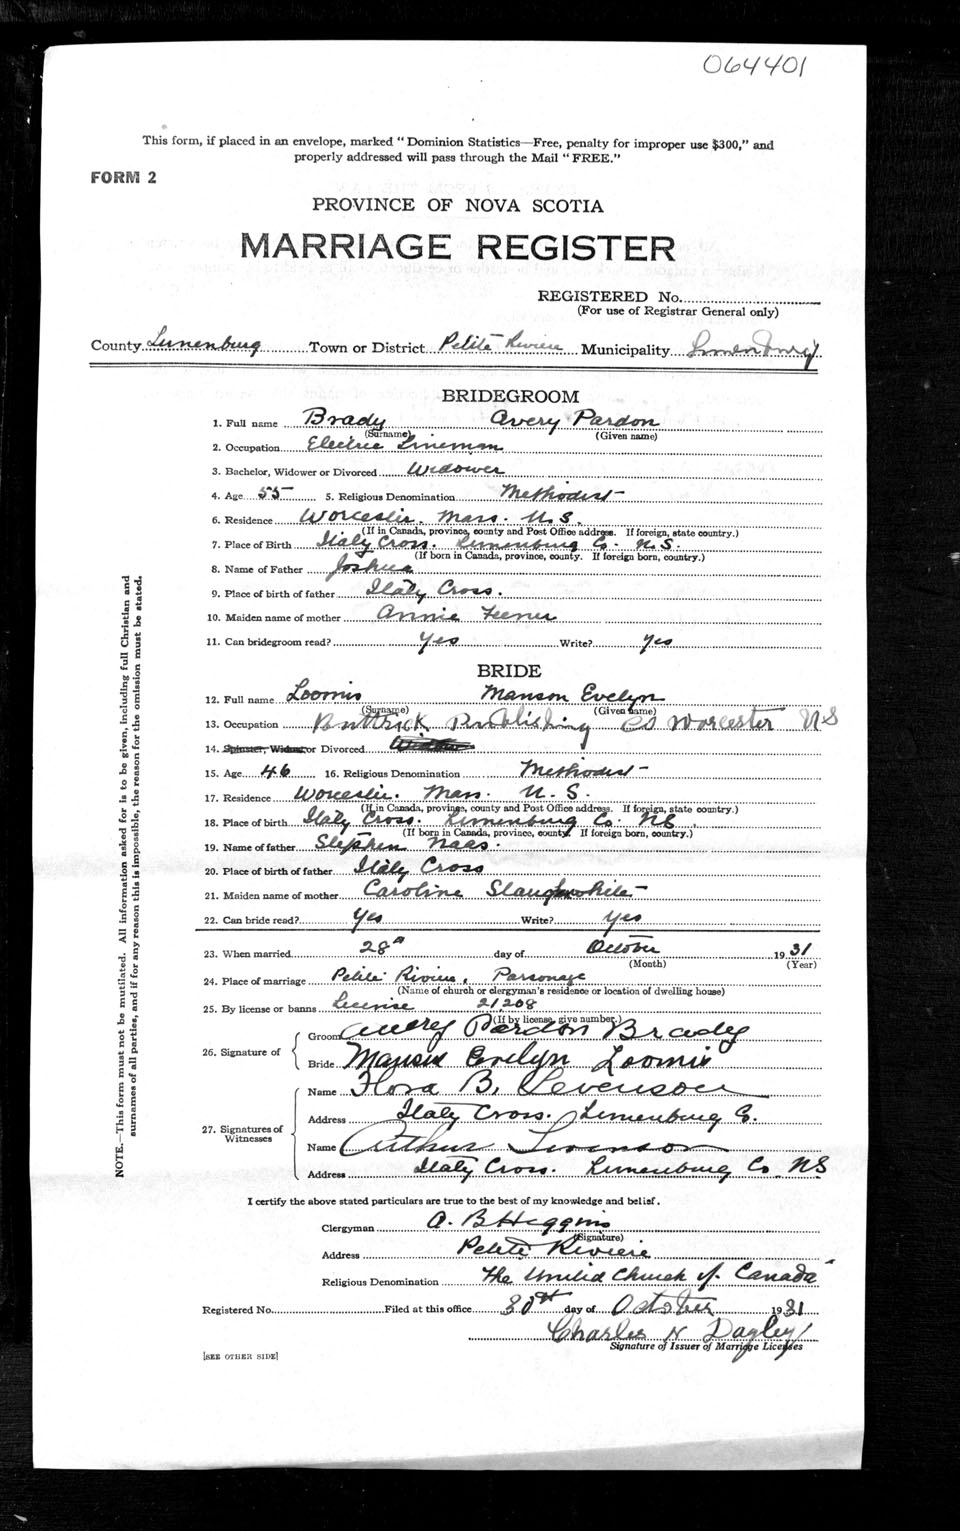 064401
This form, if placed in an envelope, marked "Dominion Statistics—Free, penalty for improper use $300," and
properly addressed will pass through the Mail "FREE."
FORM 2
PROVINCE OF NOVA SCOTIA
MARRIAGE REGISTER
REGISTERED No.
(For use of Registrar General only)
County Lunenburg Town or District Petite Riviere Municipality Lunenburg
BRIDEGROOM
1. Full name Brady Avery Pardon
(Surname) (Given name)
2. Occupation Electric Lineman
3. Bachelor, Widower or Divorced Widower
4. Age 55 5. Religious Denomination Methodist
6. Residence Worcester, Mass. U.S.
(If in Canada, province, county and Post Office address. If foreign, state country.)
7. Place of Birth Italy Cross. Lunenburg Co. N.S.
(If born in Canada, province, county. If foreign born, country.)
8. Name of Father Joshua
9. Place of birth of father Italy Cross.
10. Maiden name of mother Annie Feener
11. Can bridegroom read? Yes Write? Yes
BRIDE
12. Full name Loomis Manson Evelyn
(Surname) (Given name)
13. Occupation Buttrick Publishing Co Worcester US
14. Spinster, Widow or Divorced
15. Age 46 16. Religious Denomination Methodist
17. Residence Worcester. Mass. U.S.
(If in Canada, province, county and Post Office address. If foreign, state country.)
18. Place of birth Italy Cross. Lunenburg Co. NS.
(If born in Canada, province, county. If foreign born, country.)
19. Name of father Stephen Naas.
20. Place of birth of father Italy Cross
21. Maiden name of mother Caroline Slaughenwhite
22. Can bride read? Yes Write? Yes
23. When married 28th day of October 1931
(Month) (Year)
24. Place of marriage Petite Riviere, Parsonage
(Name of church or clergyman's residence or location of dwelling house)
25. By license or banns License 21208
(If by license, give number.)
26. Signature of
Groom Avery Pardon Brady
Bride Manson Evelyn Loomis
27. Signatures of Witnesses
Name Flora B. Levenson
Address Italy Cross. Lunenburg Co.
Name Arthur Levenson
Address Italy Cross. Lunenburg Co NS
I certify the above stated particulars are true to the best of my knowledge and belief.
Clergyman A. B Higgins
(Signature)
Address Petite Riviere
Religious Denomination The United Church of Canada
Registered No. Filed at this office 30th day of October 1931
Charles N Dagley
Signature of Issuer of Marriage Licenses
[SEE OTHER SIDE]
NOTE.—This form must not be mutilated. All information asked for is to be given, including full Christian and
surnames of all parties, and if for any reason this is impossible, the reason for the omission must be stated.